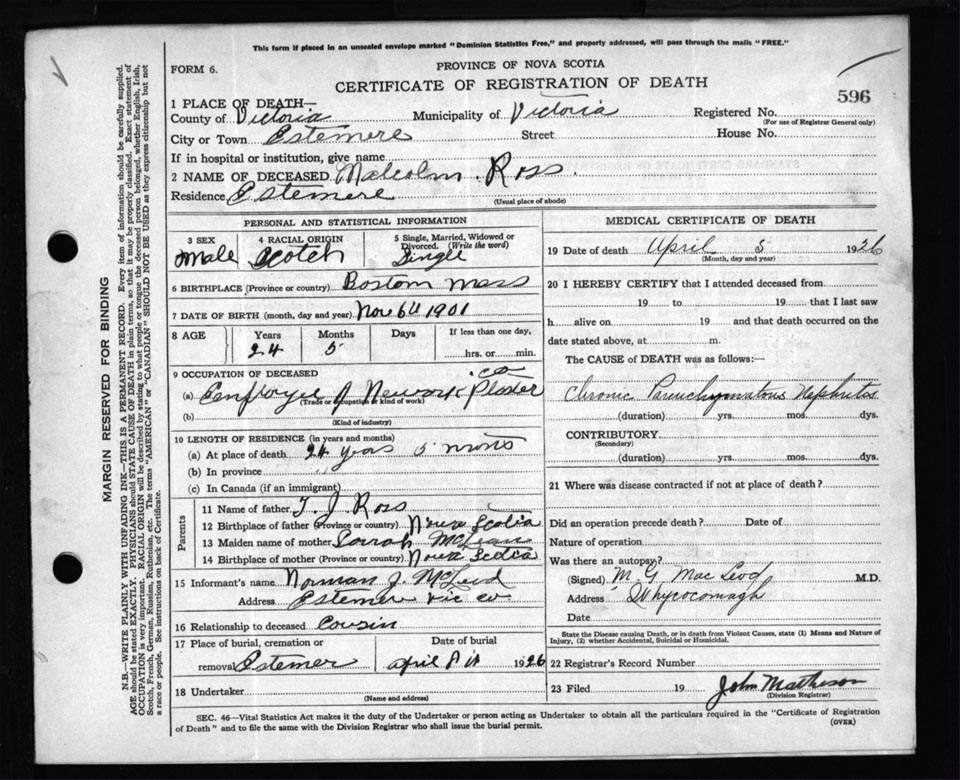 This form if placed in an unsealed envelope marked "Dominion Statistics Free," and properly addressed, will pass through the mails "FREE."
FORM 6.
PROVINCE OF NOVA SCOTIA
CERTIFICATE OF REGISTRATION OF DEATH
596
1 PLACE OF DEATH—
County of Victoria Municipality of Victoria Registered No.
(For use of Registrar General only)
City or Town Estemere Street House No.
If in hospital or institution, give name
2 NAME OF DECEASED Malcolm Ross.
Residence Estemere
(Usual place of abode)
PERSONAL AND STATISTICAL INFORMATION
3 SEX 4 RACIAL ORIGIN 5 Single, Married, Widowed or Divorced. (Write the word)
Male Scotch Single
6 BIRTHPLACE (Province or country) Boston Mass
7 DATE OF BIRTH (month, day and year) Nov 6th 1901
8 AGE Years Months Days If less than one day,
24 5 hrs. or min.
9 OCCUPATION OF DECEASED
(a) Employee of Newark Plaster co
(Trade or occupation or kind of work)
(b)
(Kind of industry)
10 LENGTH OF RESIDENCE (in years and months)
(a) At place of death 24 years 5 monts
(b) In province
(c) In Canada (if an immigrant)
Parents
11 Name of father T. J. Ross
12 Birthplace of father (Province or country) Nova Scotia
13 Maiden name of mother Sarrah McLean
14 Birthplace of mother (Province or country) Nova Scotia
15 Informant's name Norman J. McLeod
Address Estemer Vic co
16 Relationship to deceased Cousin
17 Place of burial, cremation or removal Estemer
Date of burial
april 8th 1926
18 Undertaker
(Name and address)
MEDICAL CERTIFICATE OF DEATH
19 Date of death April 5 1926
(Month, day and year)
20 I HEREBY CERTIFY that I attended deceased from
19 to 19 that I last saw
h alive on 19 and that death occurred on the
date stated above, at m.
The CAUSE of DEATH was as follows:
Chronic Parenchymatous Nephritis
(duration) yrs. mos. dys.
CONTRIBUTORY
(Secondary)
(duration) yrs. mos. dys.
21 Where was disease contracted if not at place of death?
Did an operation precede death? Date of
Nature of operation
Was there an autopsy?
(Signed) M. G. Mac Leod M.D.
Address Whycocomagh
Date
State the Disease causing Death, or in death from Violent Causes, state (1) Means and Nature of
Injury, (2) whether Accidental, Suicidal or Homicidal.
22 Registrar's Record Number
23 Filed 19 John Matheson
(Division Registrar)
SEC. 46—Vital Statistics Act makes it the duty of the Undertaker or person acting as Undertaker to obtain all the particulars required in the "Certificate of Registration
of Death" and to file the same with the Division Registrar who shall issue the burial permit.
(OVER)
MARGIN RESERVED FOR BINDING
N.B.—WRITE PLAINLY WITH UNFADING INK—THIS IS A PERMANENT RECORD. Every item of information should be carefully supplied.
AGE should be stated EXACTLY. PHYSICIANS should STATE CAUSE OF DEATH in plain terms, so that it may be properly classified. Exact statement of
OCCUPATION is very important. RACIAL ORIGIN will be described by stating to what people or tongue the deceased person belonged, whether English, Irish,
Scotch, French, German, Russian, Ruthenian, etc. The terms "AMERICAN" or "CANADIAN" SHOULD NOT BE USED as they express citizenship but not
a race or people. See instructions on back of Certificate.